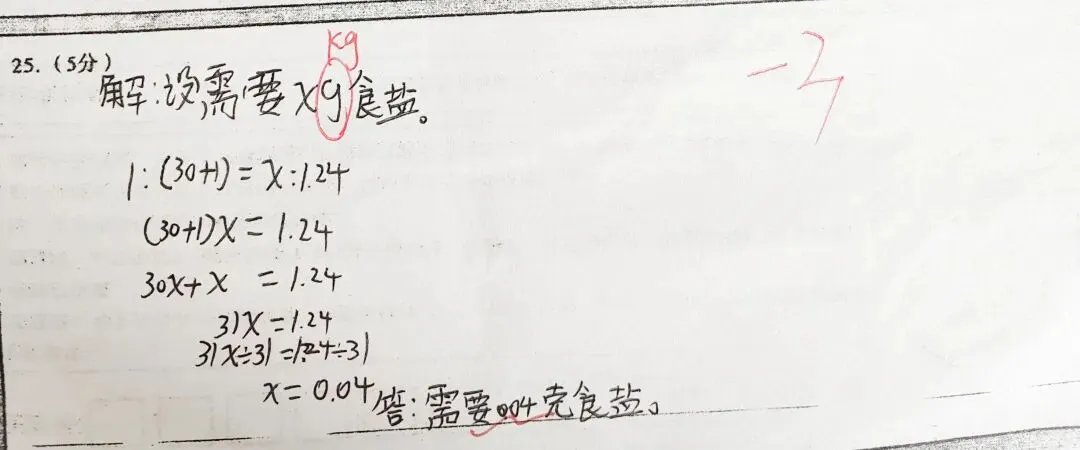 kg
-3
25.（5分）
解:设需要xg食盐。
1:(30+1)=x:1.24
(30+1)x=1.24
30x+x =1.24
31x=1.24
31x÷31=1.24÷31
x=0.04 答:需要0.04克食盐。